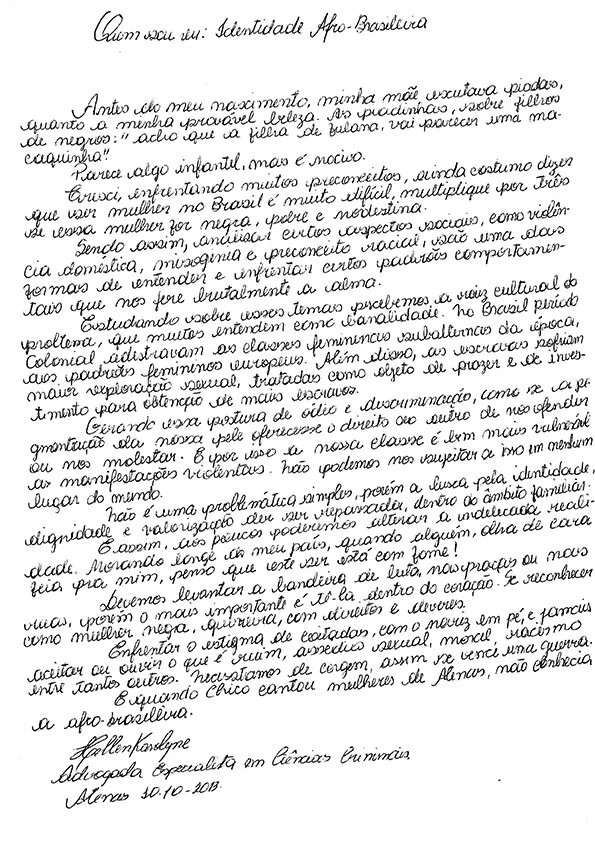 Quem sou eu: Identidade Afro-Brasileira
Antes do meu nascimento, minha mãe escutava piadas,
quanto a minha provável beleza. As piadinhas, sobre filhos
de negros: "acho que a filha de fulana, vai parecer uma ma-
caquinha".
Parece algo infantil, mas é nocivo.
Cresci, enfrentando muitos preconceitos, ainda costumo dizer
que ser mulher no Brasil é muito difícil, multiplique por três
se essa mulher for negra, pobre e nordestina.
Sendo assim, analisar certos aspectos sociais, como violên-
cia doméstica, misoginia e preconceito racial, são uma das
formas de entender e enfrentar certos padrões comportamen-
tais que nos fere brutalmente a alma.
Estudando sobre esses temas percebemos a raiz cultural do
problema, que muitos entendem como banalidade. No Brasil período
Colonial adistravam as classes femininas subalternas da época,
aos padrões femininos europeus. Além disso, as escravas sofriam
maior exploração sexual, tratadas como objeto de prazer e de inves-
timento para obtenção de mais escravos.
Gerando essa postura de ódio e discriminação, como se a pi-
gmentação da nossa pele oferecesse o direito ao outro de nos ofender
ou nos molestar. E por isso a nossa classe é bem mais vulnerável
as manifestações violentas. Não podemos nos sujeitar a isso em nenhum
lugar do mundo.
Não é uma problemática simples, porém a busca pela identidade,
dignidade e valorização deve ser repassada, dentro do âmbito familiar.
E assim, aos poucos poderemos alterar a indelicada reali-
dade. Morando longe do meu país, quando alguém, olha de cara
feia pra mim, penso que este ser está com fome!
Devemos levantar a bandeira de luta, nas praças ou nas
ruas, porém o mais importante é tê-la dentro do coração. Se reconhecer
como mulher negra, guerreira, com direitos e deveres.
Enfrentar o estigma de coitadas, com o nariz em pé, e jamais
aceitar ou ouvir o que é ruim, assédio sexual, moral, racismo
entre tantos outros. Necessitamos de coragem, assim se vence uma guerra.
E quando Chico cantou mulheres de Atenas, não conhecia
a afro-brasileira.
Hellen Karolyne
Advogada Especialista em Ciências Criminais
Atenas 10-10-2013.